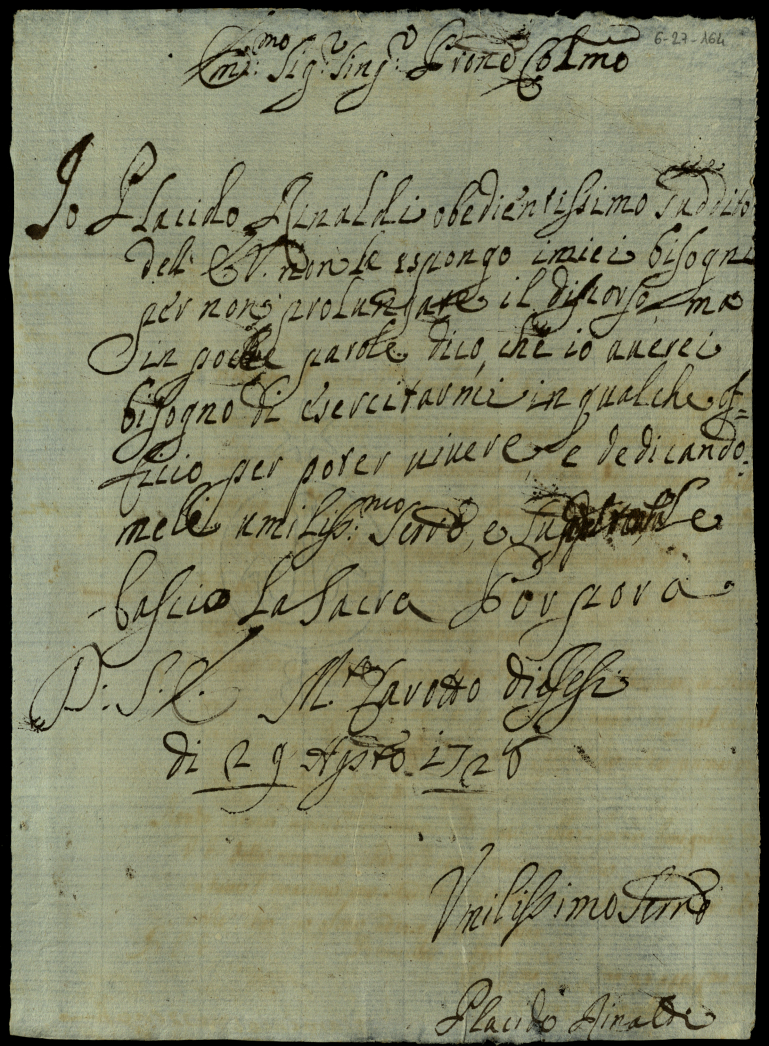 6-27-164
Em:mo Sig:r Sing:r Prone Colmo
Io Placido Rinaldi obedientissimo Suddito
dell' E.V. non le espongo i miei bisogni
per non prolungare il discorso, ma
in poche parole dico, che io averei
bisogno di esercitarmi in qualche of=
ficio per poter vivere, e dedicando
mele umiliss:mo Servo, e
bascio la Sacra Porpora
D: S. E. M.te Carotto di Jesi
di 29 Agsto 1726
Umilissimo Servo
Placido Rinaldi